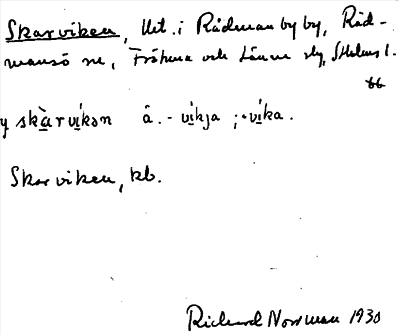 Skarviken, Ut. i Rådmanby by, Råd-
mansö sn, Frötuna och Länna slg, Sthlms l.
bb
y skàrvíkən â. - víkja ; -víka.
Skarviken, kb.
Richard Norrman 1930